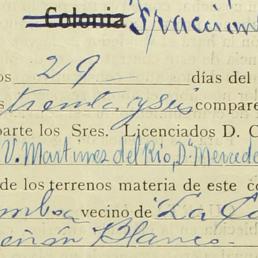 Colonia Fracción
os 29 días del
s treinta y seis compare
parte los Sres. Licenciados D. C
V. Martinez del Rio, Dª Mercede
de los terrenos materia de este co
vecino de "La Co
Peñón Blanco.